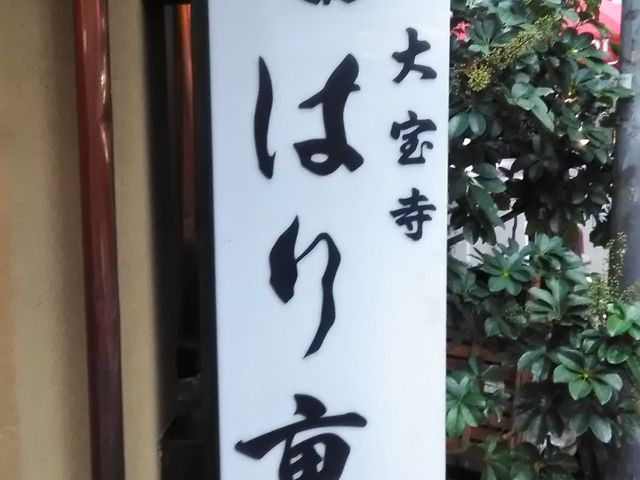 大宝寺
はり重